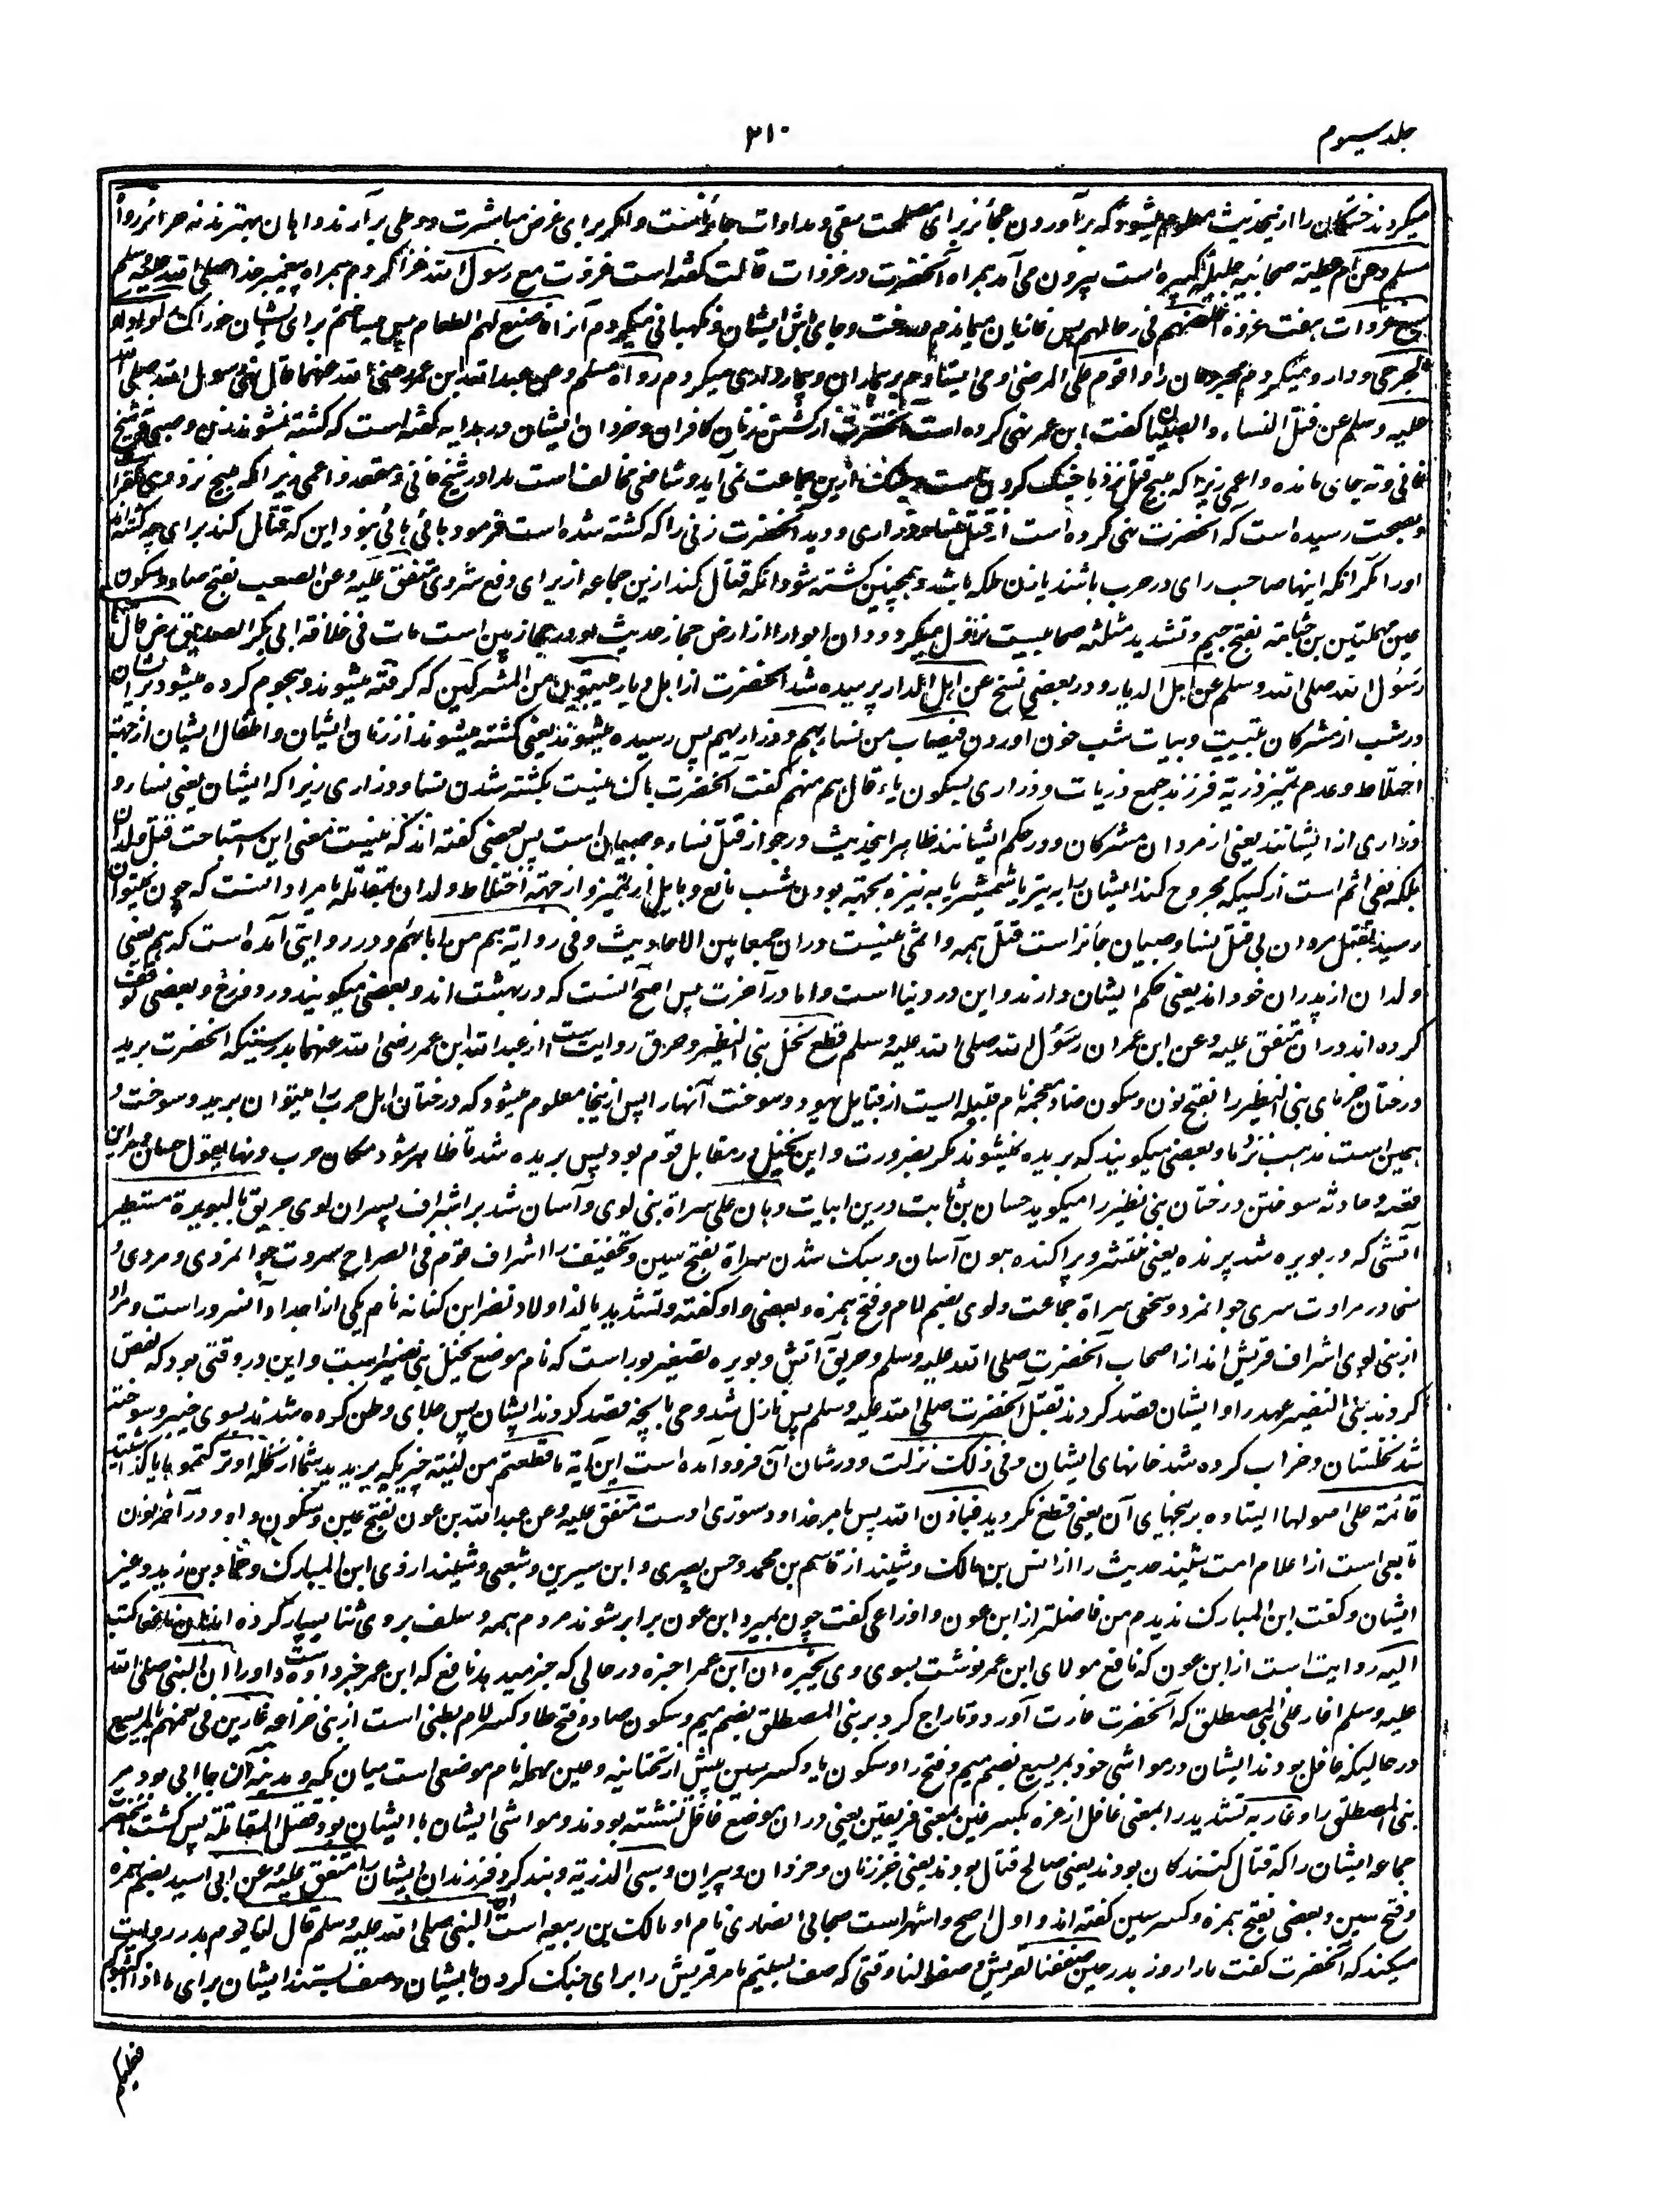 جلد سیوم
۲۱۰
میکردند خستگان را ازینحدیث معلوم میشود که برآوردن عجائز برای مصلحت سقی و مداوات جائزست واگر برای غرض مباشرت و وطی برآرند داهان بهترند نه حرائر رواه
مسلم وعن ام عطیة صحابیه جلیله کبیره است بیرون می آمد همراه آنحضرت در غزوات قالت گفته است غزوت مع رسول الله غزا کردم همراه پیغمبر خدا صلی الله علیه وسلم
سبع غزوات هفت غزوه اخلفهم فی رحالهم پس غازیان میماندم در رخت و جای باش ایشان و نگهبانی میکردم آنرا فاصنع لهم الطعام پس میساختم برای ایشان خوراک و اداوی
الجرحی و دارو میکردم مجروحان را واقوم علی المرضی و می ایستادم بر بیماران و بیمارداری میکردم رواه مسلم وعن عبدالله ابن عمر رضی الله عنهما قال نهی رسول الله صلی الله
علیه وسلم عن قتل النساء والصبیان گفت ابن عمر نهی کرده است آنحضرت از کشتن زنان کافران و خردان ایشان و در هدایه گفته است که کشته نشوند زن وصبی و شیخ
فانی و نه بجای مانده واعمی زیرا که مبیح قتل نزد ما جنگ کردن است و جنگ ازین جماعت نمی آید و شافعی مخالف است ما را در شیخ فانی و مقعد واعمی زیرا که مبیح نزد وی کفر است
وبصحت رسیده است که آنحضرت نهی کرده است از قتل نساء و ذراری و دید آنحضرت زنی را که کشته شده است فرمود هائی هائی نبود این که قتال کند برای چه کشته اند
اورا مگر آنکه اینها صاحب رای در حرب باشند یا زن ملکه باشد و همچنین کشته شود آنکه قتال کند ازین جماعه از برای دفع شر وی متفق علیه وعن الصعب بفتح صاد وسکون
عین مهملتین بن جثامة بفتح جیم وتشدید مثلثه صحابیست نزول میکرد ودان ابوا را از ارض حجاز حدیث او در حجازیین است مات فی خلافة ابی بکر الصدیق رض قال
رسول الله صلی الله وسلم عن اهل الدیار و در بعضی نسخ عن اهل الدار پرسیده شد آنحضرت از اهل دیار یبیتون من المشرکین که گرفته میشوند و هجوم کرده میشود بر ایشان
در شب از مشرکان تبییت وبیات شب خون آوردن فیصاب من نساءهم وذراریهم پس رسیده میشوند یعنی کشته میشوند از زنان ایشان و اطفال ایشان از جهة
اختلاط وعدم تمییز ذریة فرزند جمع ذریات وذراری بسکون یاء قال هم منهم گفت آنحضرت باک نیست بکشته شدن نسا وذراری زیرا که ایشان یعنی نساء و
ذراری از ایشانند یعنی از مردان مشرکان و در حکم ایشانند ظاهر اینحدیث در جواز قتل نساء و صبیان است پس بعضی گفته اند که نیست معنی این استباحت قتل ولدان
بلکه نفی اثم است از کسیکه مجروح کند ایشان را به تیر یا شمشیر یا به نیزه بجهة بودن شب مانع و حایل از تمیز و از جهة اختلاط ولدان بمقاتله یا مراد آنست که چون نمیتوان
رسید بقتل مردان بی قتل نسا و صبیان جائز است قتل همه و اثمی نیست دران جمعا بین الاحادیث و فی روایة هم من اباءهم و در روایتی آمده است که هم یعنی
ولدان از پدران خود اند یعنی حکم ایشان دارند و این در دنیا است و اما در آخرت پس اصح آنست که در بهشت اند و بعضی میگویند در دوزخ و بعضی توقف
کرده اند دران متفق علیه وعن ابن عمر ان رسول الله صلی الله علیه وسلم قطع نخل بنی النضیر وحرق روایت است از عبدالله ابن عمر رضی الله عنهما بدرستیکه آنحضرت برید
درختان خرمای بنی النضیر را بفتح نون وسکون ضاد معجمه نام قبیله ایست از قبایل یهود و سوخت آنها را پس ازینجا معلوم میشود که درختان اهل حرب را میتوان برید و سوخت و
همین است مذهب نزد ما و بعضی میگویند که بریده نمیشوند مگر بضرورت و این نخیل در مقابل قوم بود پس بریده شد تا ظاهر شود مکان حرب ولها یقول حسان و مر این
قصه و حادثه سوختن درختان بنی نضیر را میگوید حسان بن ثابت درین ابیات وهان علی سراة بنی لوی و آسان شد بر اشراف پسران لوی حریق بالبویرة مستطیر
آتشی که در بویره شد پرنده یعنی منتشر و پراکنده هون آسان و سبک شدن سراة بفتح سین و تخفیف را اشراف قوم فی الصراح سروت جوانمردی و مردی و
سخاوت مروت سری جوانمرد و سخی سراة جماعت ولوی بضم لام وفتح همزه و بعضی واو گفته وتشدید یا از اولاد نضر ابن کنانه نام یکی از اجداد آنسرور است ومراد
از بنی لوی اشراف قریش اند از اصحاب آنحضرت صلی الله علیه وسلم وحریق آتش و بویره تصغیر بور است که نام موضع نخیل بنی نضیر است و این در وقتی بود که نقض
کردند بنی النضیر عهد را و ایشان قصد کردند بقتل آنحضرت صلی الله علیه وسلم پس نازل شد وحی بآنچه قصد کردند ایشان پس جلای وطن کرده شدند بسوی خیبر و سوخته
شد نخلستان و خراب کرده شد خانهای ایشان و فی ذلک نزلت و در شان آن فرود آمده است این آیة ما قطعتم من لینة چیزیکه بریدید شما از نخله او ترکتموها یا گذاشتید
قائمة علی اصولها ایستاده بر بیخهای آن یعنی قطع نکردید فباذن الله پس بامر خدا و دستوری اوست متفق علیه وعن عبدالله بن عون بفتح عین وسکون واو و در آخر نون
تابعی است از اعلام امت شنید حدیث را از انس بن مالک و شنید از قاسم بن محمد وحسن بصری و ابن سیرین وشعبی وشنید از وی ابن المبارک وحماد بن زید وغیر
ایشان و گفت ابن المبارک ندیدم من فاضلتر از ابن عون و اوزاعی گفت چون بمیرد ابن عون برابر شوند مردم همه و سلف بر وی ثنا بسیار کرده اند ان نافعا کتب
الیه روایت است از ابن عون که نافع مولای ابن عمر نوشت بسوی وی یخبره ان ابن عمر اخبره در حالی که خبر میدهد نافع که ابن عمر خبر داده است او را ان النبی صلی الله
علیه وسلم اغار علی بنی المصطلق که آنحضرت غارت آورد و تاراج کرد بر بنی المصطلق بضم میم وسکون صاد وفتح طا وکسر لام بطنی است از بنی خزاعه غارین فی نعمهم بالمریسیع
در حالیکه غافل بودند ایشان در مواشی خود بمریسیع بضم میم وفتح را وسکون یا وکسر سین پیش از تحتانیه وعین مهمله نام موضعی است میان مکه و مدینه آن جا آبی بود مر
بنی المصطلق را و غار به تشدید را بمعنی غافل از غره بکسر غین بمعنی فریفتن یعنی دران موضع غافل نشسته بودند و مواشی ایشان با ایشان بود فقتل المقاتلة پس کشت آنحضرت
جماعه ایشان را که قتال کنندگان بودند یعنی صالح قتال بودند یعنی جز زنان و خردان و پیران وسبی الذریة و بند کرد فرزندان ایشان را متفق علیه وعن ابی اسید بضم همزه
وفتح سین و بعضی بفتح همزه وکسر سین گفته اند و اول اصح واشهر است صحابی انصاری نام او مالک بن ربیعه است ان النبی صلی الله علیه وسلم قال لنا یوم بدر روایت
میکند که آنحضرت گفت مارا روز بدر حین صففنا لقریش وصفوا لنا وقتی که صف بستیم ما مر قریش را برای جنگ کردن بایشان وصف بستند ایشان برای ما اذا اکثبوکم
فعلیکم